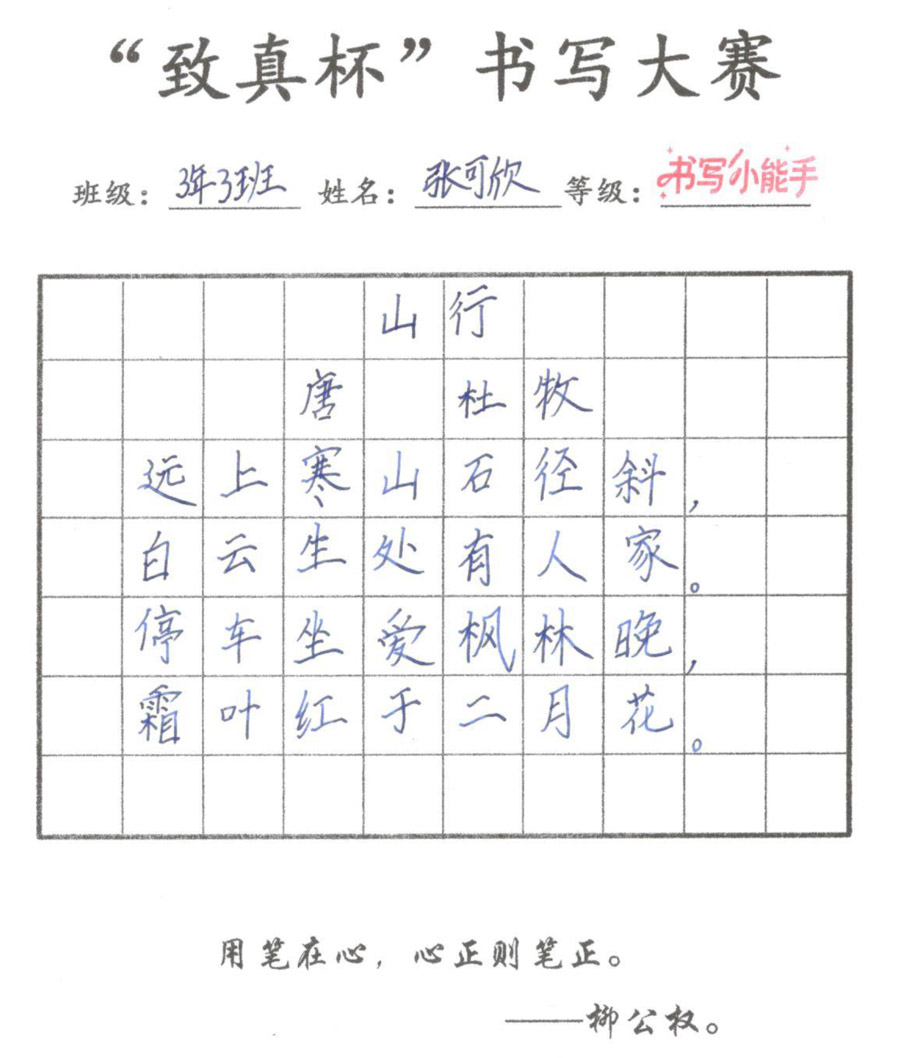 “致真杯”书写大赛
班级：3年3班 姓名：张可欣 等级：书写小能手
山行
唐 杜牧
远上寒山石径斜，
白云生处有人家。
停车坐爱枫林晚，
霜叶红于二月花。
用笔在心，心正则笔正。
——柳公权。